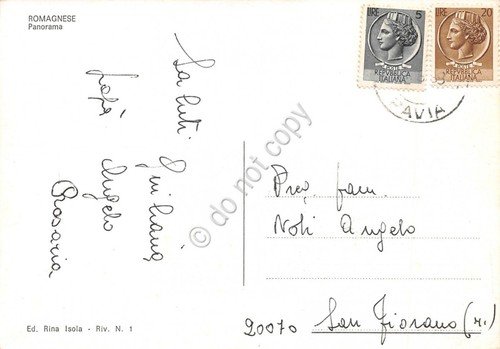 ROMAGNESE
Panorama
Saluti
Giuliana,
Papà
Angelo
Rosaria
LIRE 5
POSTE
REPVBBLICA
ITALIANA
LIRE 20
POSTE
REPVBBLICA
ITALIANA
PAVIA
do not copy
Preg. fam.
Noli Angelo
20070 San Fiorano (MI)
Ed. Rina Isola - Riv. N. 1